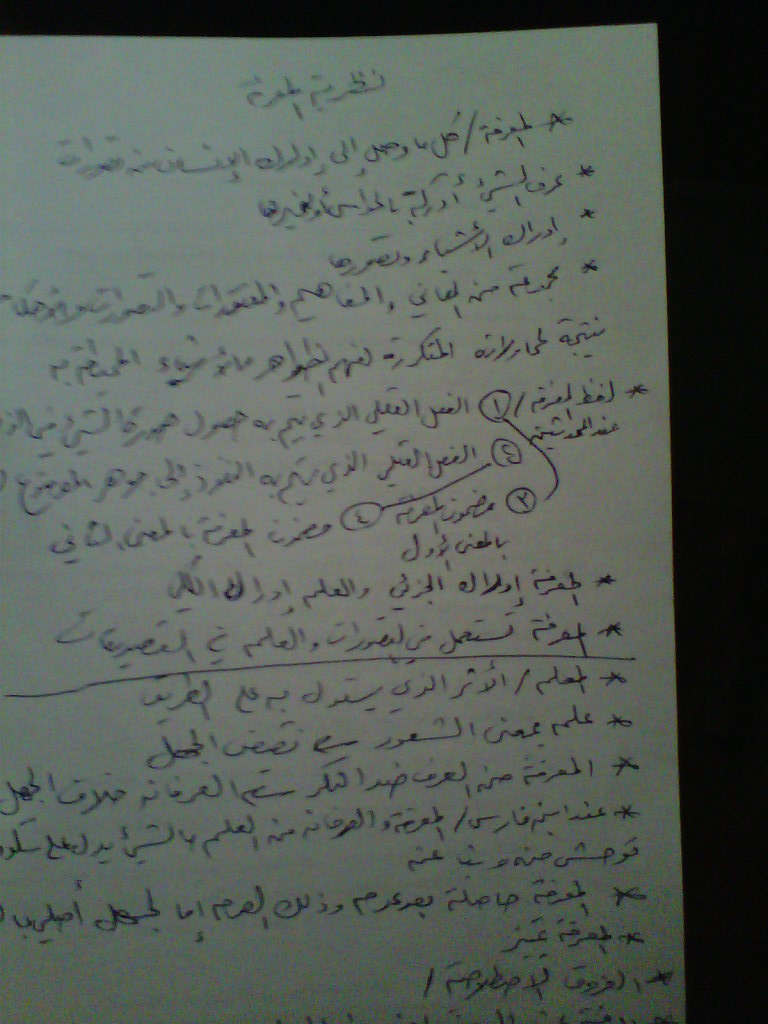 نظرية المعرفة
* المعرفة / كل ما وصل إلى إدراك الإنسان من تصورات
* عرف الشيئ أدركه بالحواس أو بغيرها
* إدراك الأشياء وتصورها
* مجموعة من المعاني والمفاهيم والمعتقدات والتصورات
نتيجة لمحاولاته المتكررة لفهم الظواهر والأشياء المحيطة به
* لفظ المعرفة / ١ الفعل العقلي الذي يتم به حصول صورة الشيئ في
عند المحدثين
٢ الفعل العقلي الذي يتم به النفوذ إلى جوهر الموضوع
٣ مضمون المعرفة ٤ مضمون المعرفة بالمعنى الثاني
بالمعنى الأول
* المعرفة إدراك الجزئي والعلم إدراك الكلي
* المعرفة تستعمل في التصورات والعلم في التصديقات
* المعلم / الأثر الذي يستدل به على الطريق
* علم بمعنى الشعور نقيض الجهل
* المعرفة من العرف ضد النكر العرفان خلاف الجهل
* عند ابن فارس / المعرفة والعرفان من العلم بالشيئ يدل على
توحش منه ونبا عنه
* المعرفة حاصلة بعد عدم وذلك العدم إما لجهل أصلي
* المعرفة تميز
* الفروق الاصطلاحية /